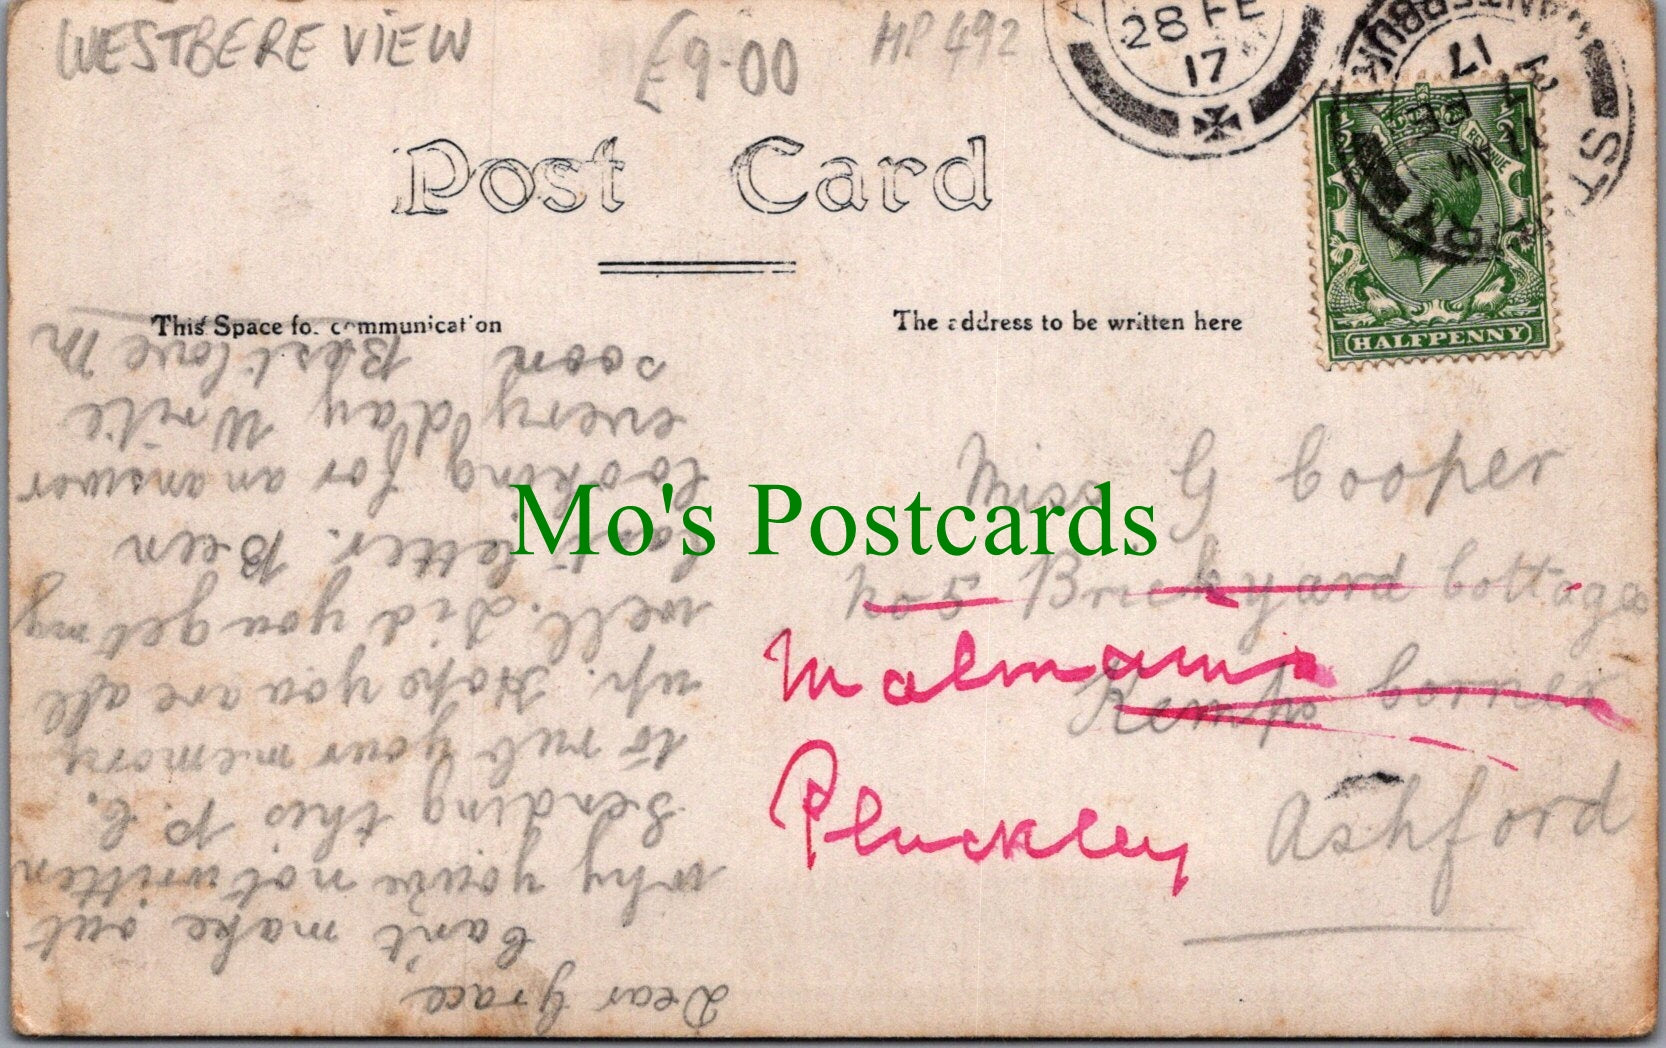 WESTBERE VIEW
£9-00
HP 492
28 FE
17
Post Card
This Space for communication
The address to be written here
HALFPENNY
REVENUE
Dear Grace
Can't make out
why you've not written
Sending this P.C.
to rub your memory
up. Hope you are all
well. Did you get my
last letter. Been
looking for an answer
every day Write
soon Best love M
Miss G Cooper
No 5 Brickyard Cottages
Kemps Corner
Ashford
Malmains
Pluckley
Mo's Postcards